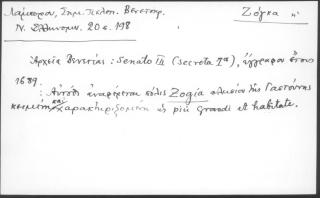 Λάμπρου, Σημ. Πελοπ. Βενετοκρ.
Ν. Ἑλληνομν. 20 σ. 198
Ζόγκα ἡ
Ἀρχεῖα Βενετίας : Senato III (secreta Iª), ἔγγραφον ἔτους
1689.
: Αὐτόθι ἀναφέρεται πόλις Zogia πλησίον τῆς Γαστούνης
κειμένη καὶ χαρακτηριζομένη ὡς più grande et habitate.